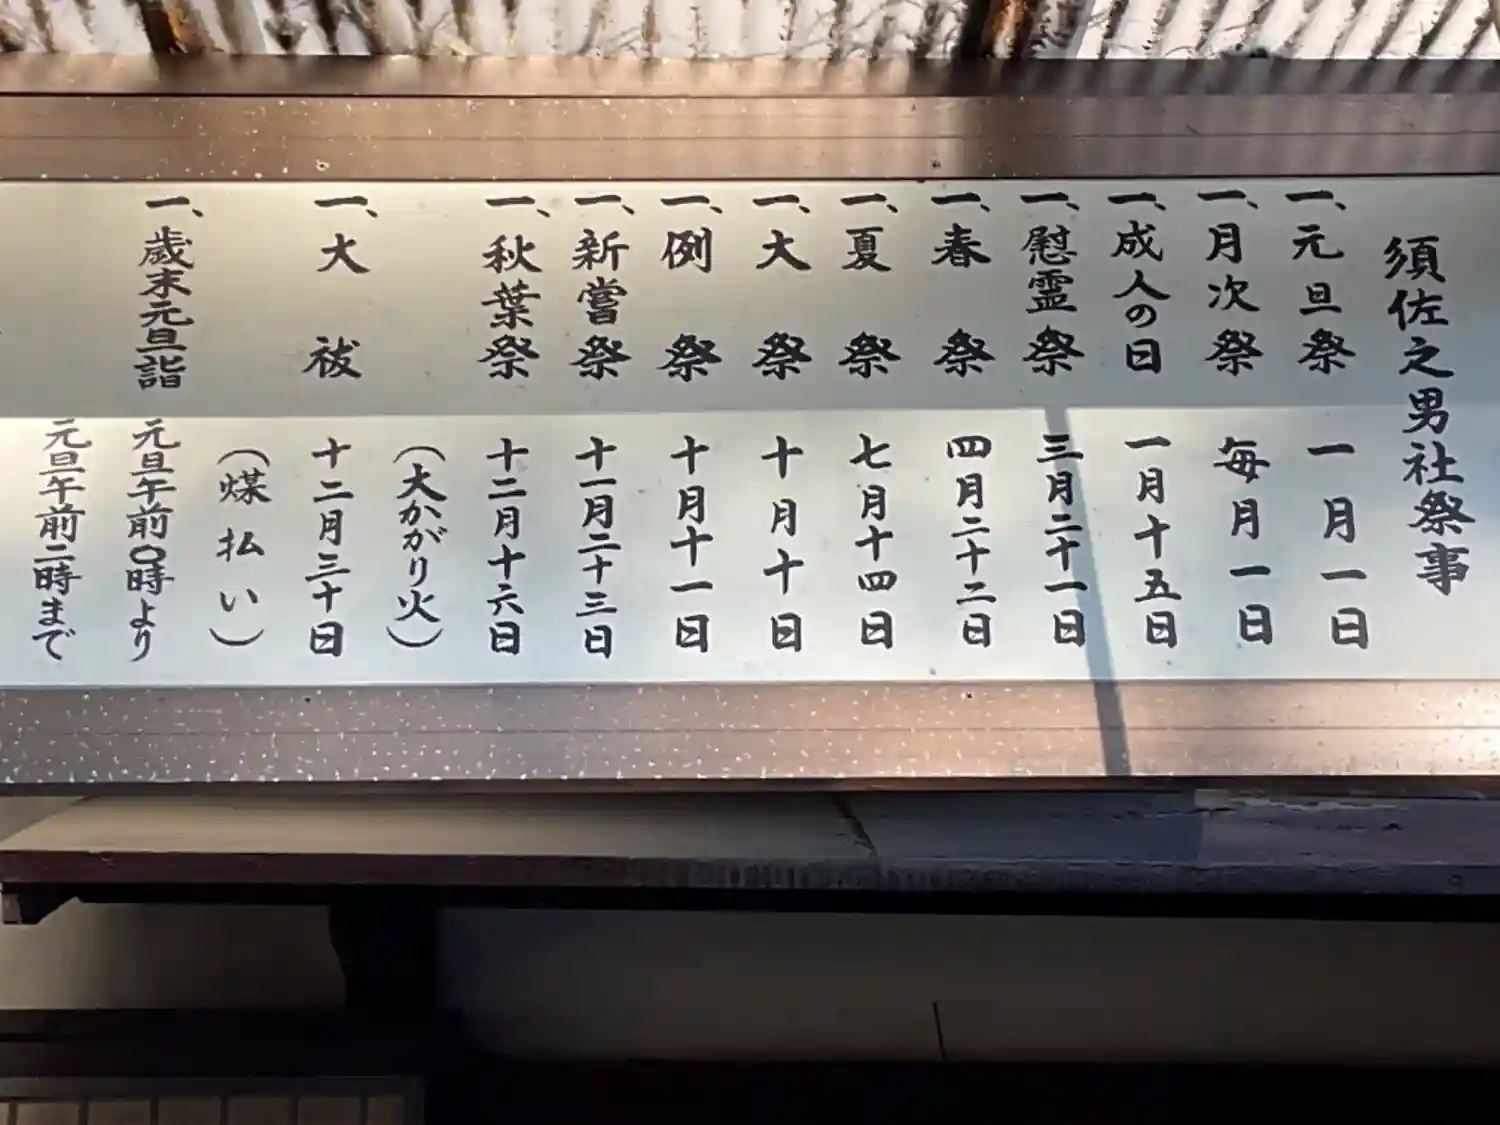 須佐之男社祭事
一、元旦祭 一月一日
一、月次祭 毎月一日
一、成人の日 一月十五日
一、慰霊祭 三月二十一日
一、春祭 四月二十二日
一、夏祭 七月十四日
一、大祭 十月十日
一、例祭 十月十一日
一、新嘗祭 十一月二十三日
一、秋葉祭 十二月十六日
(大かがり火)
一、大祓 十二月三十日
(煤払い)
一、歳末元旦詣 元旦午前〇時より
元旦午前二時まで